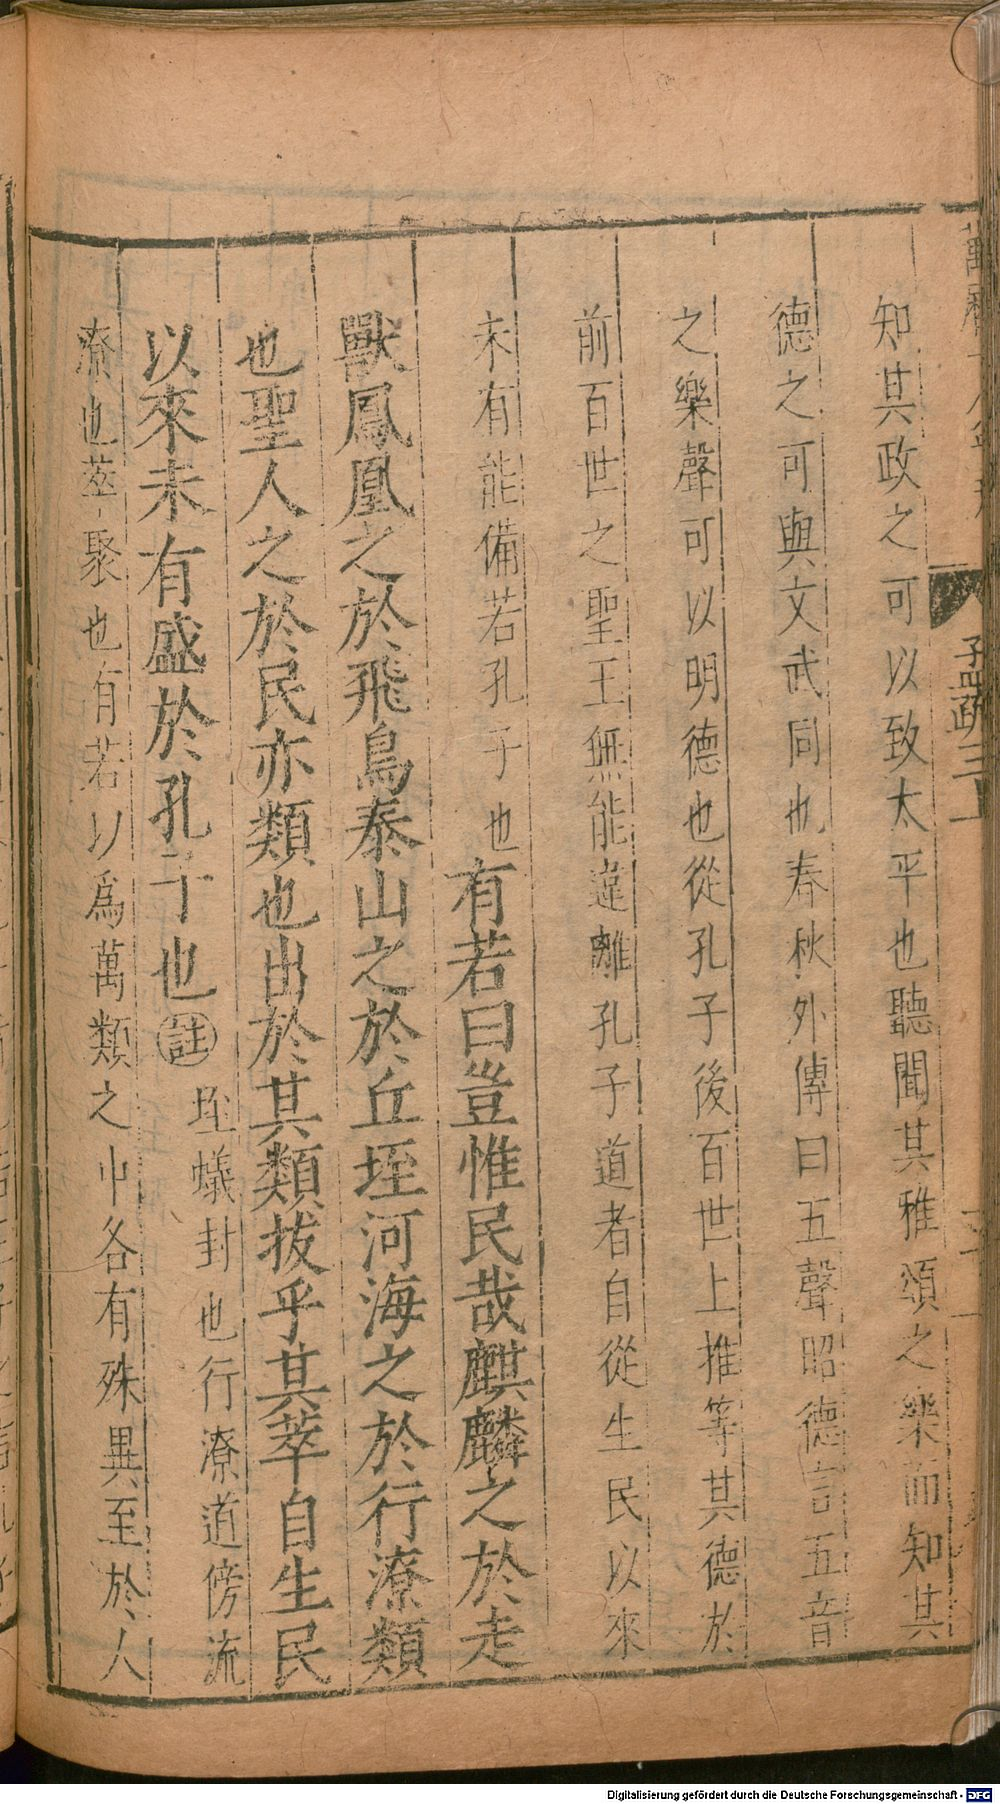 孟疏三上
知其政之可以致太平也聽聞其雅頌之樂而知其
德之可與文武同也春秋外傳曰五聲昭德言五音
之樂聲可以明德也從孔子後百世上推等其德於
前百世之聖王無能違離孔子道者自從生民以來
未有能備若孔子也有若曰豈惟民哉麒麟之於走
獸鳳凰之於飛鳥泰山之於丘垤河海之於行潦類
也聖人之於民亦類也出於其類拔乎其萃自生民
以來未有盛於孔子也註垤蟻封也行潦道傍流
潦也萃聚也有若以為萬類之中各有殊異至於人
Digitalisierung gefördert durch die Deutsche Forschungsgemeinschaft - DFG